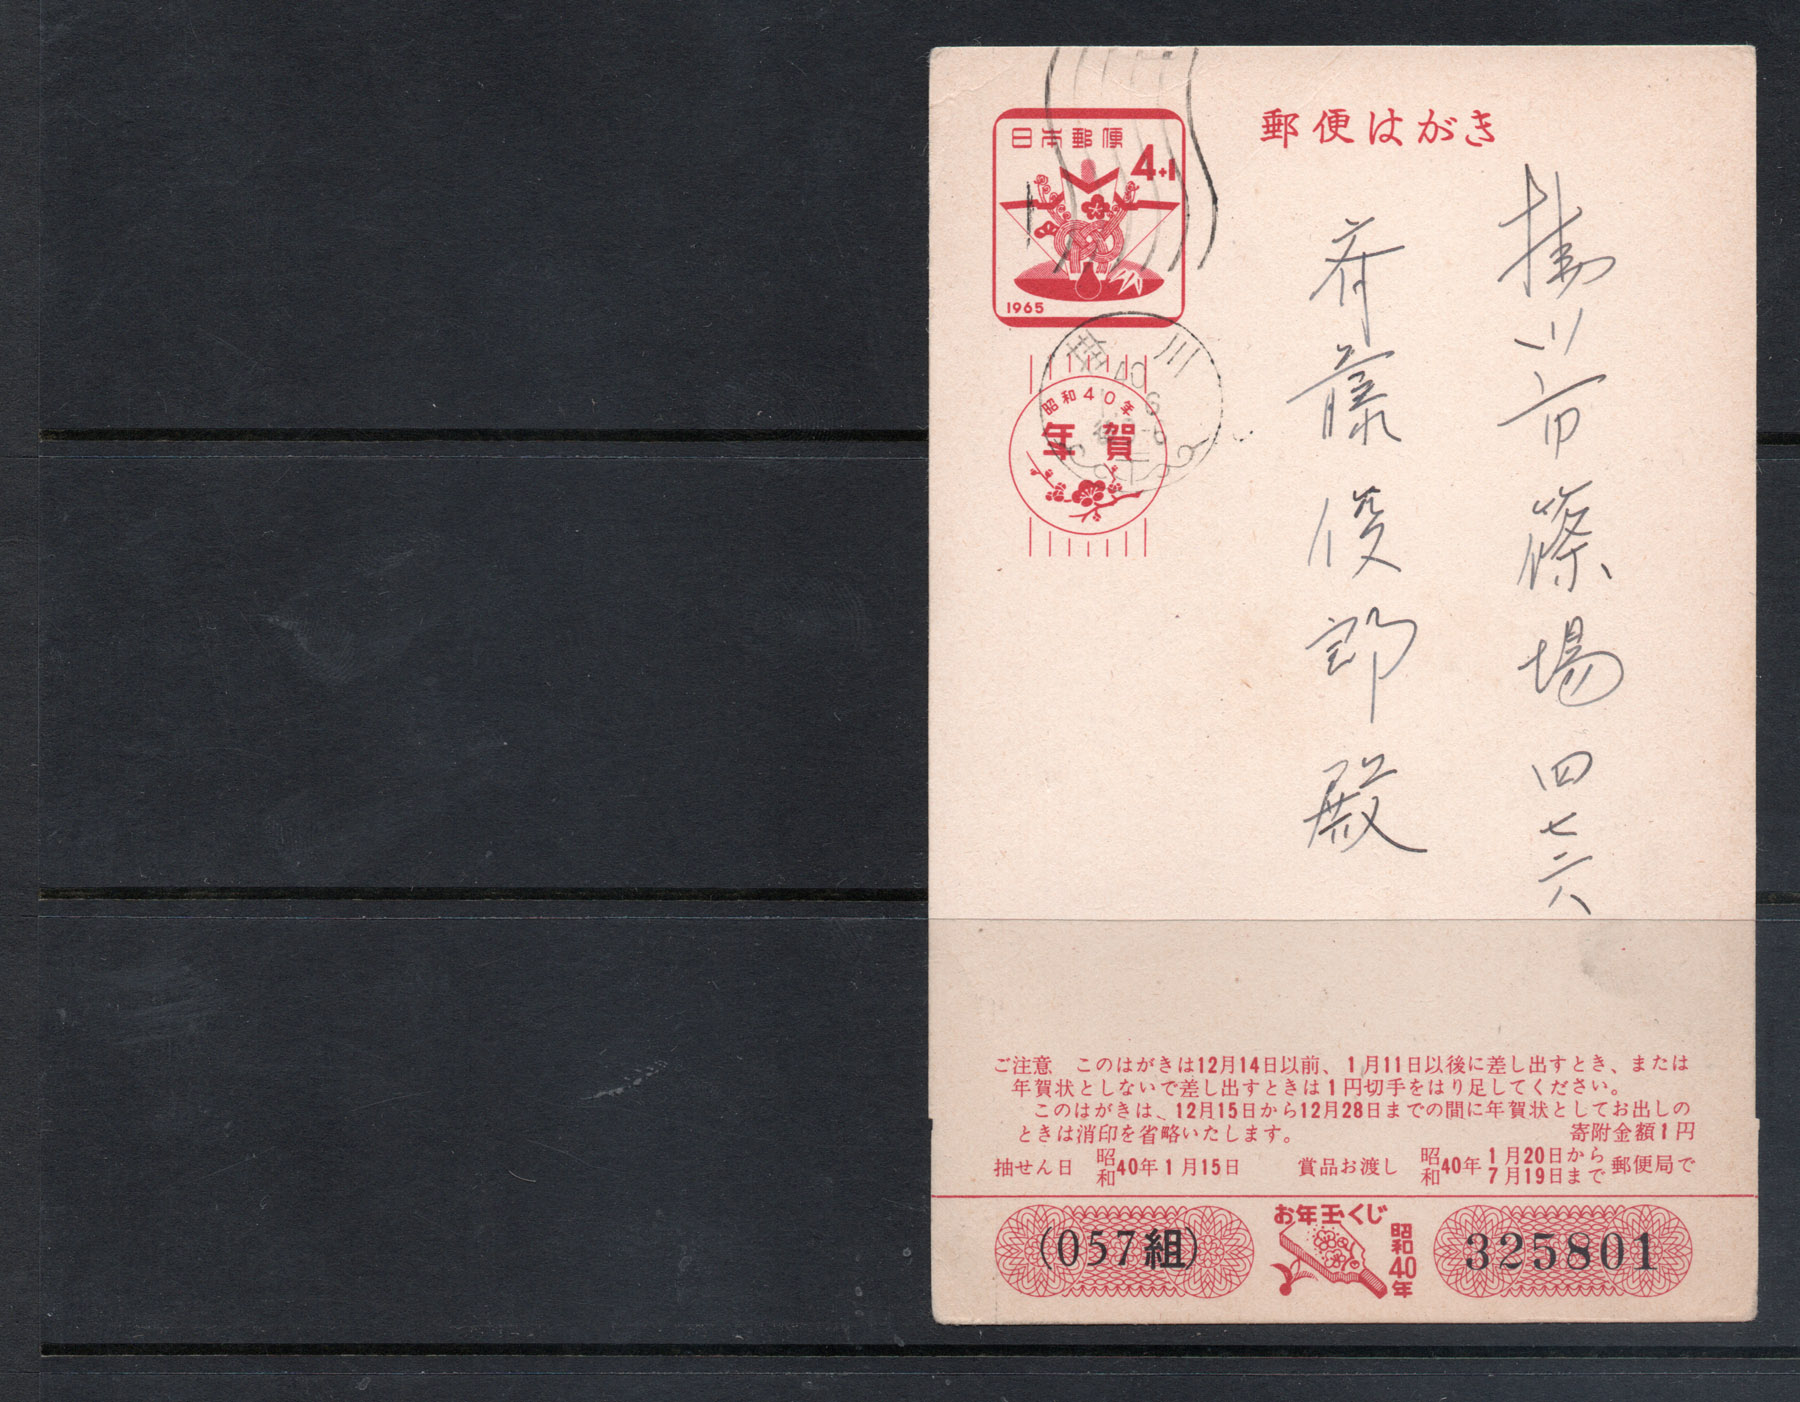 郵便はがき
日本郵便
4+1
1965
掛川市篠場四七六
斉藤俊郎殿
掛川
40
6
昭和40年
年賀
ご注意 このはがきは12月14日以前、1月11日以後に差し出すとき、または
年賀状としないで差し出すときは1円切手をはり足してください。
このはがきは、12月15日から12月28日までの間に年賀状としてお出しの
ときは消印を省略いたします。 寄附金額1円
抽せん日 昭和40年1月15日 賞品お渡し 昭和40年1月20日から7月19日まで郵便局で
(057組)
お年玉くじ
昭和40年
325801